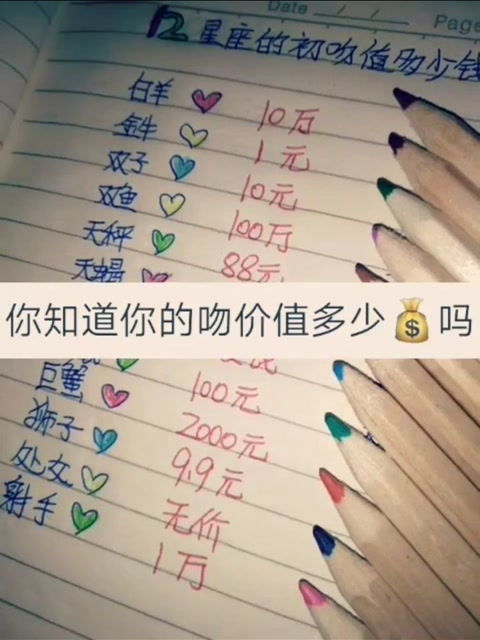 Date / /
Page
12星座的初吻值多少钱
白羊 10万
金牛 1元
双子 10元
双鱼 100万
天秤 100万
天蝎 88元
你知道你的吻价值多少💰吗
巨蟹 100元
狮子 2000元
处女 9.9元
射手 无价
1万